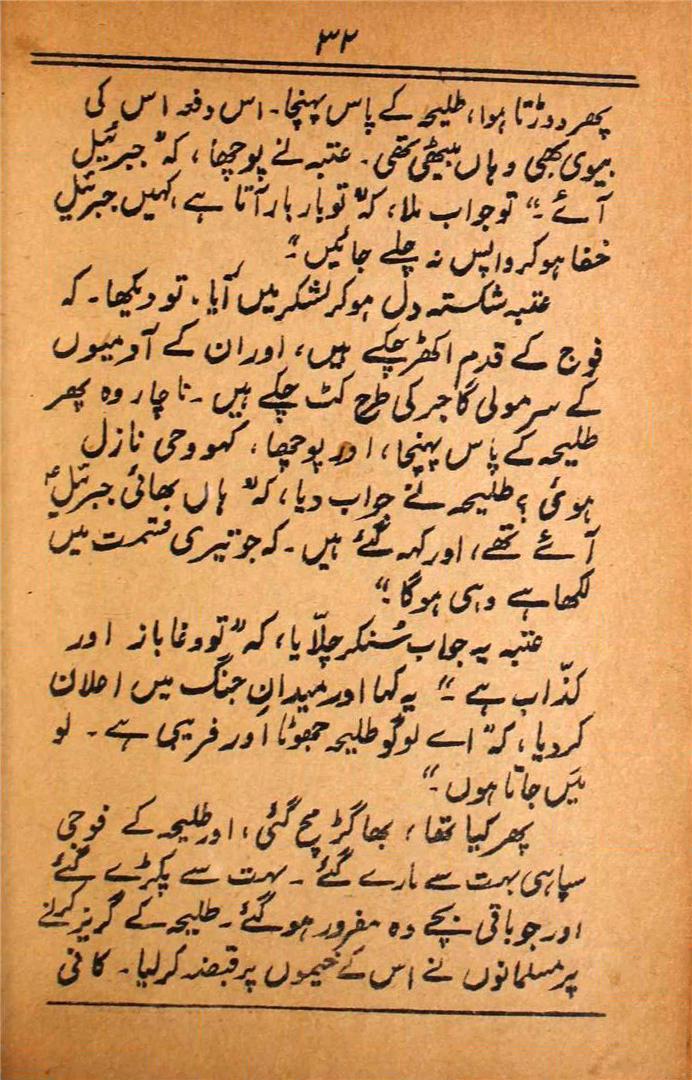 ۳۲
پھر دوڑتا ہوا، طلیحہ کے پاس پہنچا۔ اس دفعہ اس کی
بیوی بھی وہاں بیٹھی تھی۔ عتبہ نے پوچھا، کہ "جبرئیل
آئے۔" تو جواب ملا، کہ "تو بار بار آتا ہے کہیں جبرئیل
خفا ہو کر واپس نہ چلے جائیں"۔
عتبہ شکستہ دل ہو کر لشکر میں آیا۔ تو دیکھا۔ کہ
فوج کے قدم اکھڑ چکے ہیں، اور ان کے آدمیوں
کے سر مولی گاجر کی طرح کٹ چکے ہیں۔ ناچار وہ پھر
طلیحہ کے پاس پہنچا، اور پوچھا، کہو وحی نازل
ہوئی؟ طلیحہ نے جواب دیا، کہ "ہاں بھائی جبرئیلؑ
آئے تھے، اور کہہ گئے ہیں۔ کہ جو تیری قسمت میں
لکھا ہے وہی ہوگا۔"
عتبہ یہ جواب سُنکر چلّایا، کہ "تو دغاباز اور
کذّاب ہے۔" یہ کہا اور میدانِ جنگ میں اعلان
کر دیا، کہ "اے لوگو طلیحہ جھوٹا اور فریبی ہے۔ لو
مَیں جاتا ہوں۔"
پھر کیا تھا، بھاگڑ مچ گئی، اور طلیحہ کے فوجی
سپاہی بہت سے مارے گئے۔ بہت سے پکڑے گئے
اور جو باقی بچے وہ مفرور ہو گئے۔ طلیحہ کے گریز کرنے
پر مسلمانوں نے اس کے خیموں پر قبضہ کر لیا۔ کافی